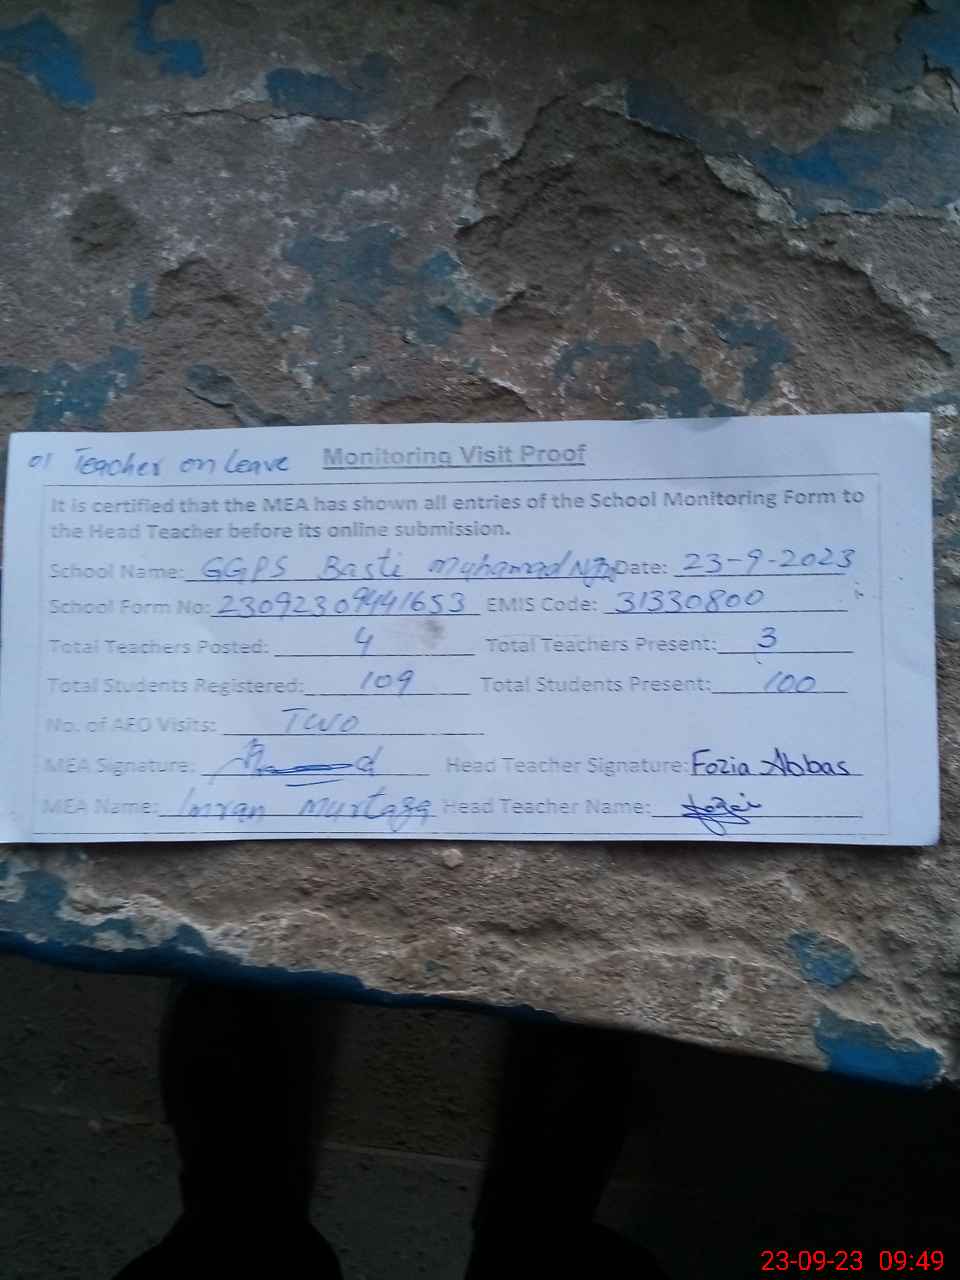 01 Teacher on leave Monitoring Visit Proof
It is certified that the MEA has shown all entries of the School Monitoring Form to
the Head Teacher before its online submission.
School Name: GGPS Basti Muhamad Date: 23-9-2023
School Form No: EMIS Code: 31330800
Total Teachers Posted: 4 Total Teachers Present: 3
Total Students Registered: 109 Total Students Present: 100
No. of AEO Visits: Two
MEA Signature: Head Teacher Signature: Fozia Abbas
MEA Name: Imran Murtaza Head Teacher Name:
23-09-23 09:49